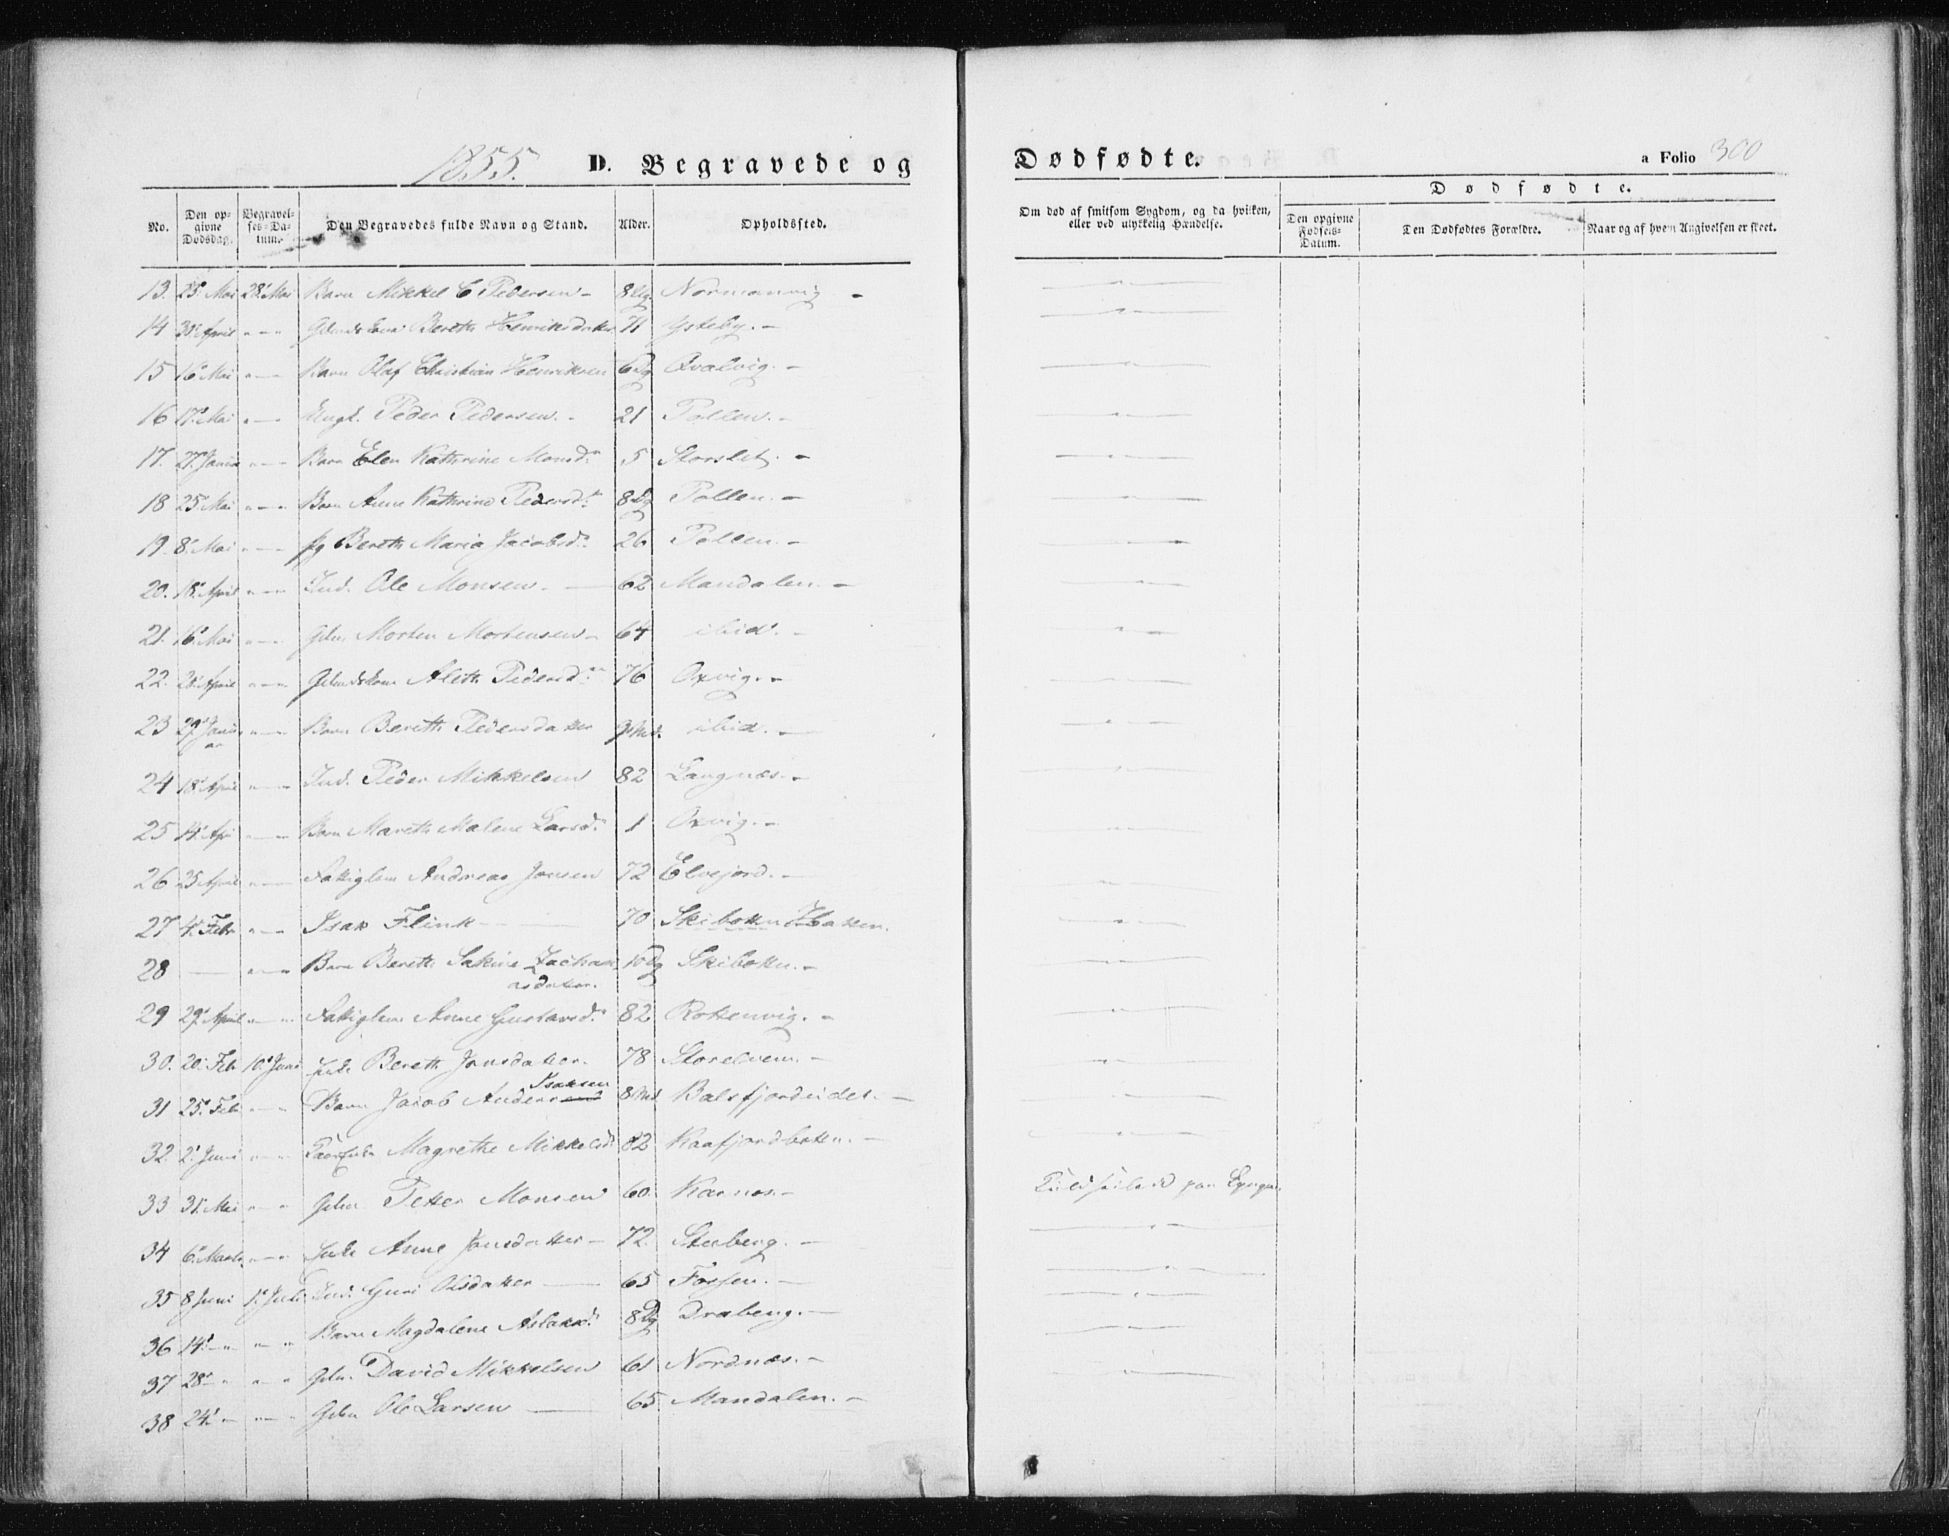 1855. D. Begravede og Dødfødte. a Folio 300
No. Den opgivne Dødsdag. Begravelses-Datum. Den Begravedes fulde Navn og Stand. Alder. Opholdssted. Om død af smitsom Sygdom, og da hvilken, eller ved ulykkelig Hændelse. Dødfødte.
Den opgivne Fødsels-Datum. Den Dødfødtes Forældre. Naar og af hvem Angivelsen er skeet.
13. 25. Mai 28. Mai Barn Mikkel C Pedersen 8 Normanvig
14 30. April " Bereth Henriksdatter 71 Ysteby.
15 16. Mai " Barn Olaf Christian Henriksen 6 Dg Qvalvig.
16 17. Mai " Ungk. Peder Pedersen. 21 Pollen.
17. 27. Januar " Barn Elen Kathrine Monsd. 5 Storslet.
18 25. Mai " Barn Anne Kathrine Pedersd. 8 Dg Pollen.
19. 8. Mai " Pg Bereth Maria Jacobsd. 26 Pollen.
20. 18. April " Ind. Ole Monsen. 62 Mandalen.
21. 16. Mai " Gdm. Morten Mortensen 64 ibid.
22. 21. April " Aleth Pedersd. 76 Oxvig.
23 29. Januar " Barn Bereth Pedersdatter 9 Md. ibid.
24 18. April " Ind. Peder Mikkelsen 82 Langnæs.
25 14. Apr " Barn Mareth Malene Larsd. 1 Oxvig.
26 25 April " Fattiglem Andreas Jonsen 72 Elvejord.
27 4. Febr " Isak Flink 70 Skibotten
28 — " Barn Bereth Sakine Zachari
asdatter. 10 Dg Skibotten.
29 29. April " Fattiglem Anne Gustavsd. 82 Rottenvig.
30. 20. Feb 10. Juni Enke Bereth Jonsdatter. 78 Storelven.
31 25. Feb " Barn Jacob Anders Isaksen 8 Md Balsfjordeidet.
32. 2. Juni " Magrethe Mikkelsd. 82 Kaafjordbotten.
33 31. Mai " Gdm. Petter Monsen 60. Karnæs. paa Lyngen
34 6. Marts " Enke Anne Jonsdatter 72. Stenberg.
35 8 Juni 1. Juli Ind. Guri Olsdatter 65 Forsen.
36 14. " " Barn Magdalene Aslaksd. 8 Dg Draberg.
37 28. " " Gdm. David Mikkelsen 61 Nordnæs.
38 24. " " Gdm Ole Larsen 65. Mandalen.